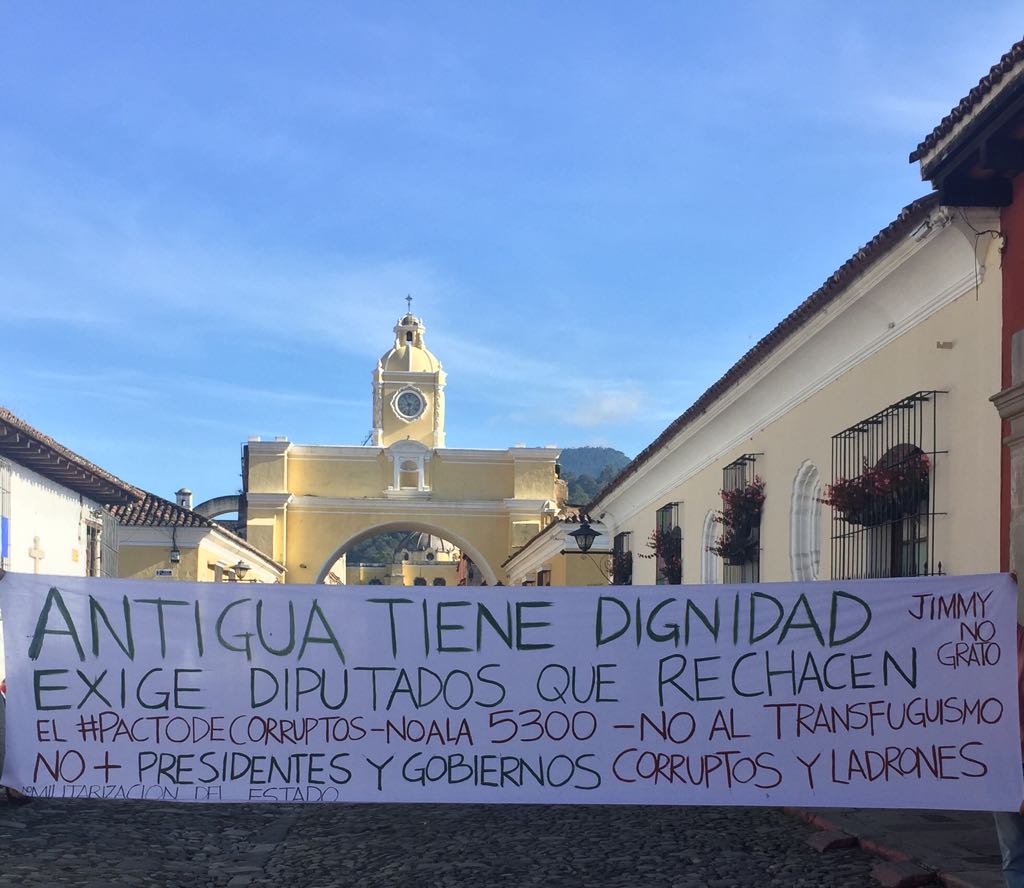 ANTIGUA TIENE DIGNIDAD
JIMMY
NO
GRATO
EXIGE DIPUTADOS QUE RECHACEN
EL #PACTODECORRUPTOS-NOALA 5300 -NO AL TRANSFUGUISMO
NO + PRESIDENTES Y GOBIERNOS CORRUPTOS Y LADRONES
NO MILITARIZACION DEL ESTADO